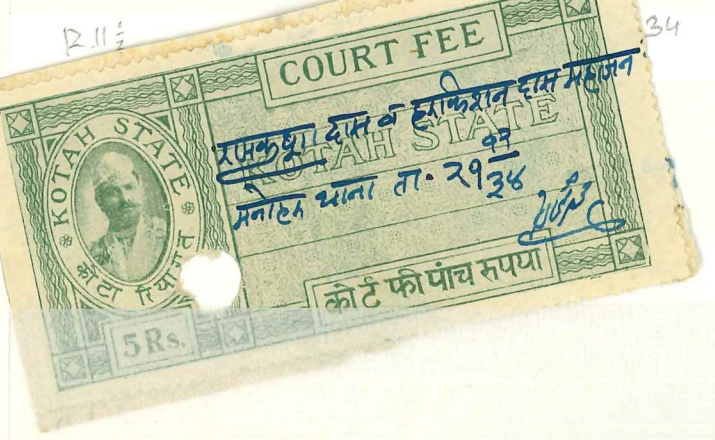 R. 11 ½
34
COURT FEE
KOTAH STATE
कोटा रियासत
KOTAH STATE
रामकृष्ण दास व हरकिशन दास महाजन
मनोहर थाना ता. २१ १२ ३४
कोर्ट फी पांच रुपया
5 Rs.